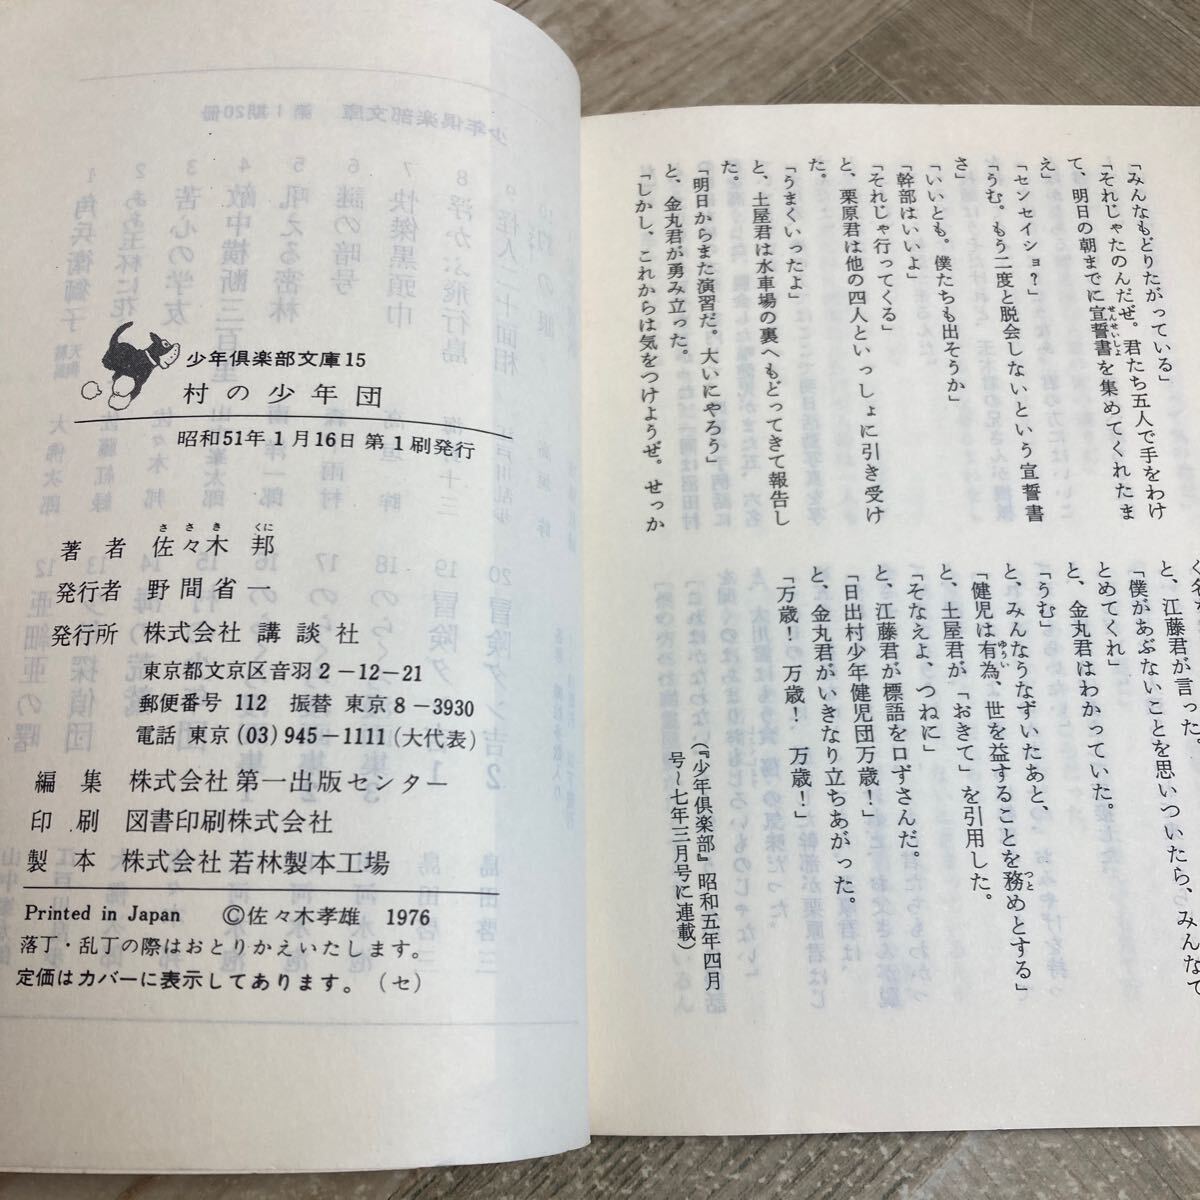 「みんなもどりたがっている」
「それじゃたのんだぜ。君たち五人で手をわけ
て、明日の朝までに宣誓書を集めてくれたま
え」
「センセイショ？」
「うむ。もう二度と脱会しないという宣誓書
さ」
「いいとも。僕たちも出そうか」
「幹部はいいよ」
「それじゃ行ってくる」
と、栗原君は他の四人といっしょに引き受け
た。
「うまくいったよ」
と、土屋君は水車場の裏へもどってきて報告し
た。
「明日からまた演習だ。大いにやろう」
と、金丸君が勇み立った。
「しかし、これからは気をつけようぜ。せっか
と、江藤君が言った。
「僕があぶないことを思いついたら、みんなで
とめてくれ」
と、金丸君はわかっていた。
「うむ」
と、みんなうなずいたあと、
「健児は有為、世を益することを務めとする」
と、土屋君が「おきて」を引用した。
「そなえよ、つねに」
と、江藤君が標語を口ずさんだ。
「日出村少年健児団万歳！」
と、金丸君がいきなり立ちあがった。
「万歳！　万歳！　万歳！」
（『少年倶楽部』昭和五年四月
号～七年三月号に連載）
少年倶楽部文庫15
村の少年団
昭和51年1月16日 第1刷発行
著者 佐々木 邦
発行者 野間省一
発行所 株式会社 講談社
東京都文京区音羽2-12-21
郵便番号 112 振替 東京8-3930
電話 東京(03)945-1111(大代表)
編集 株式会社第一出版センター
印刷 図書印刷株式会社
製本 株式会社若林製本工場
Printed in Japan ©佐々木孝雄 1976
落丁・乱丁の際はおとりかえいたします。
定価はカバーに表示してあります。(セ)